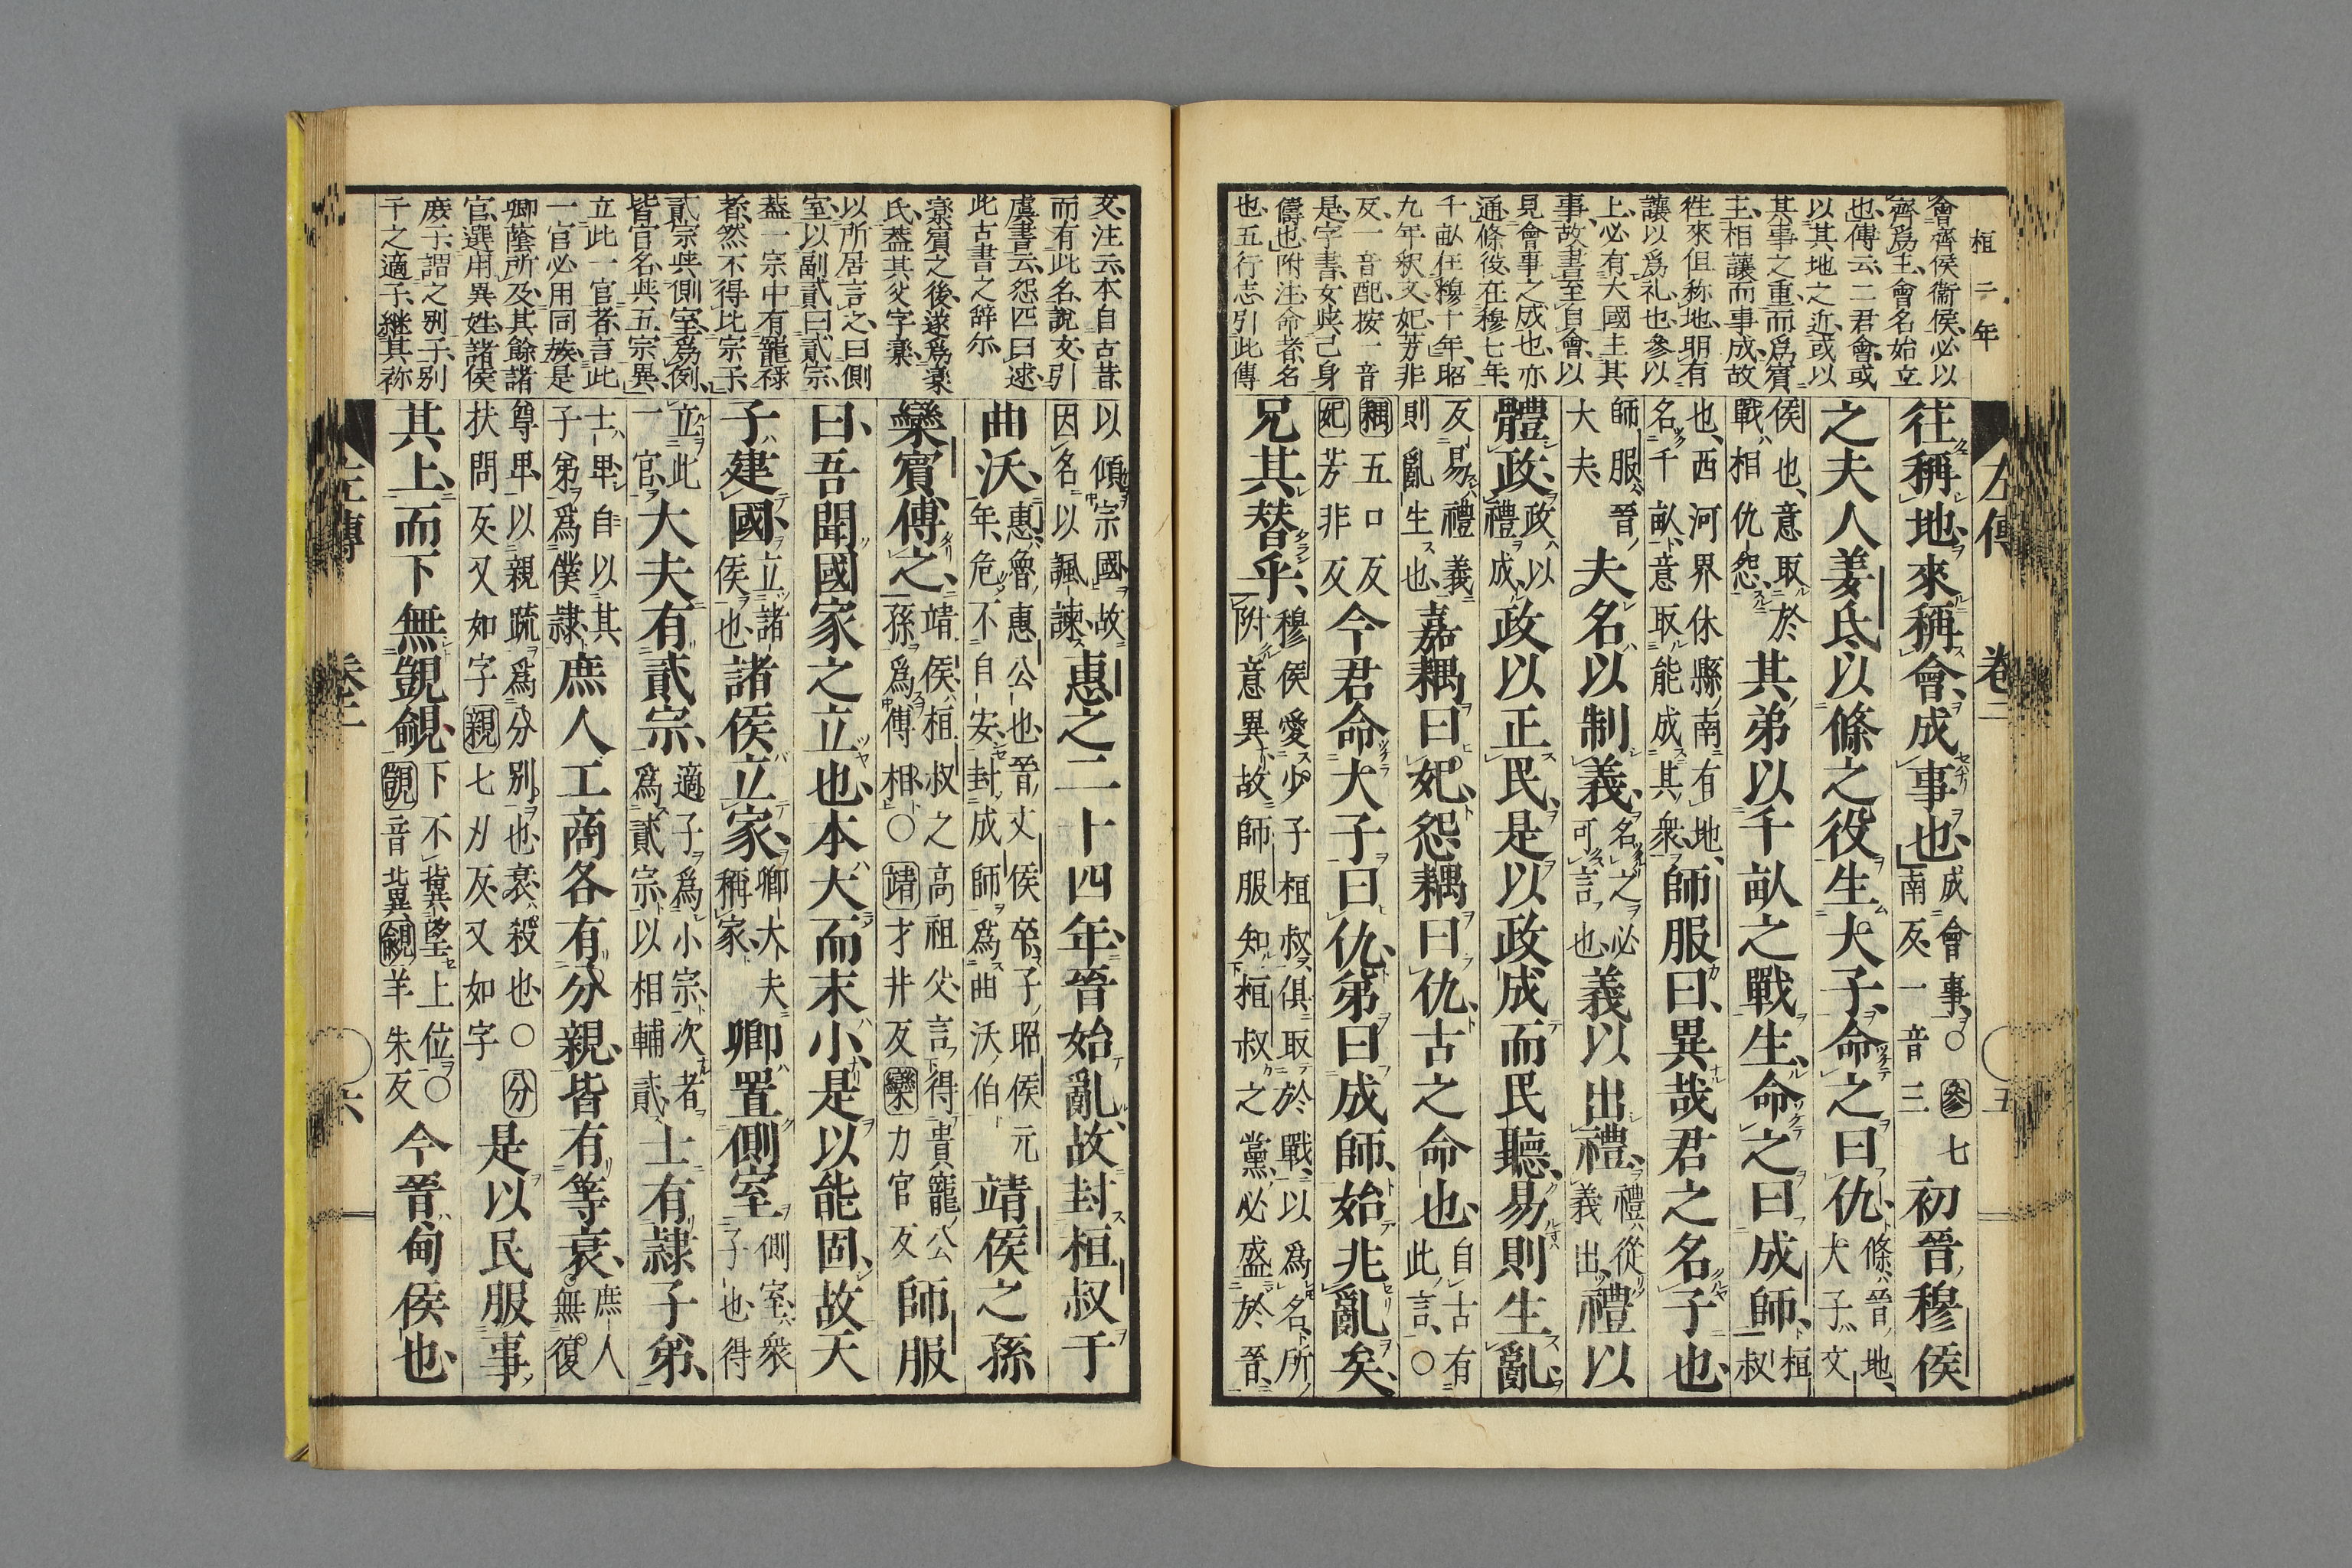 桓二年
會齊侯衞侯、必以
齊爲主、會名始立
也、傳云、二君會、或
以其地之近、或以
其事之重、而爲賓
主、相讓而事成、故
徃來但称地、明有
讓以爲礼也、參以
上、必有大國主其
事、故書至自會、以
見會事之成也、亦
通、條役、在穆七年、
千畝在穆十年、昭
九年釈文、妃芳非
反、一音配、按一音
是、字書、女與己身
儔也、附注、命者、名
也、五行志、引此傳
左傳 卷二 五
往稱地、來稱會、成事也、成會事、○參七南反、一音三初晉穆侯
之夫人姜氏、以條之役生大子、命之曰仇、條、晉地、大子、文
侯也、意取於戰相仇怨、其弟以千畝之戰生、命之曰成師、桓叔
也、西河界休縣南有地、名千畝、意取能成其衆、師服曰、異哉君之名子也、
師服、晉大夫、夫名以制義、名之必可言也、義以出禮、禮從義出、禮以
體政、政以禮成、政以正民、是以政成而民聽、易則生亂、
反易禮義則亂生也、嘉耦曰妃、怨耦曰仇、古之命也、自古有此言、○
耦五口反妃芳非反今君命大子曰仇、弟曰成師、始兆亂矣、
兄其替乎、穆侯愛少子桓叔、俱取於戰、以爲名、所附意異、故師服知桓叔之黨、必盛於晉、
文、注云、本自古昔
而有此名、說文、引
虞書云、怨匹曰逑、
此古書之辞尔、
欒賓之後、遂爲欒
氏、蓋其父字欒、
以所居言之、曰側
室、以副貳曰貳宗、
蓋一宗中有寵禄
者、然不得比宗子、
貳宗與側室爲例、
皆官名、與五宗異、
立此一官者、言此
一官必用同族、是
卿蔭所及、其餘諸
官、選用異姓、諸侯
庶子、謂之別子、別
子之適子、継其祢
以傾宗國、故因名以諷諫、惠之二十四年、晉始亂、故封桓叔于
曲沃、惠、魯惠公也、晉文侯卒、子昭侯元年、危不自安、封成師爲曲沃伯靖侯之孫
欒賓傅之、靖侯、桓叔之高祖父、言得貴寵公孫爲傅相、○靖才井反欒力官反師服
曰、吾聞國家之立也、本大而末小、是以能固、故天
子建國、立諸侯也、諸侯立家、卿大夫稱家、卿置側室、側室、衆子也、得
立此一官、大夫有貳宗、適子爲小宗、次者爲貳宗、以相輔貳、士有隷子弟、
士卑、自以其子弟爲僕隷、庶人工商各有分親、皆有等衰、庶人無復
尊卑、以親疏爲分別也、衰、殺也、○分扶問反又如字親七刃反、又如字是以民服事
其上、而下無覬覦、下不冀望上位、○覬音冀覦羊朱反今晉甸侯也、
左傳 卷二 六